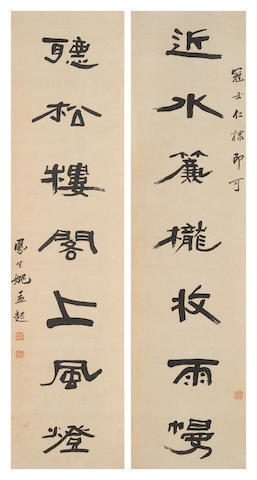 冠士仁棣即可
近水簾櫳收雨幔
聽松樓閣上風燈
鳳生姚孟起